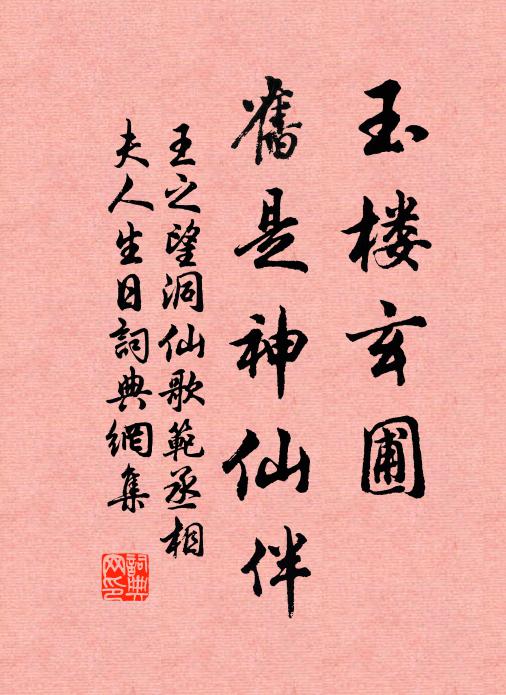 玉楼玄圃
舊是神仙伴
王之望洞仙歌範丞相
夫人生日詞典網集
詞典網印